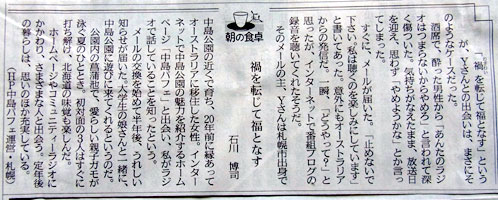 朝の食卓
禍を転じて福となす
石川 博司
「禍を転じて福となす」という
が、Yさんとの出会いは、まさにそ
のようなケースだった。
酒席で、酔った男性から「あんたのラジ
オはつまらないからやめろ」と言われて深
く傷ついた。気持ちがなえたまま、放送日
を迎え、思わず「やめようかな」とか言っ
てしまった。
すぐに、メールが届いた。「止めないで
下さい。私は聴くのを楽しみにしています」
と書いてあった。意外にもオーストラリア
からの発信だ。一瞬、「どうやって？」と
思ったが、インターネットで番組ブログの
録音を聴いてくれたそうだ。
そのメールの主、Yさんは札幌市出身で
中島公園の近くで育ち、20年前に縁あって
オーストラリアに移住した女性。インター
ネットで中島公園の魅力を紹介するホーム
ページ「中島パフェ」と出会い、私がラジ
オで話していることを知ったという。
メールの交換を始めて半年後、うれしい
知らせが届いた。大学生の娘さんと一緒に、
公園に遊びに来てくれるというのだ。
公園内の菖蒲池で、愛らしい親子カモが
泳ぐ夏のひととき、初対面の3人はすぐに
打ち解け、北海道の味覚も楽しんだ。
ホームページやコミュニティーラジオに
かかわり、さまざまな人と出会う。定年後
の暮らしは、思いのほか充実している。
（HP中島パフェ運営・札幌）